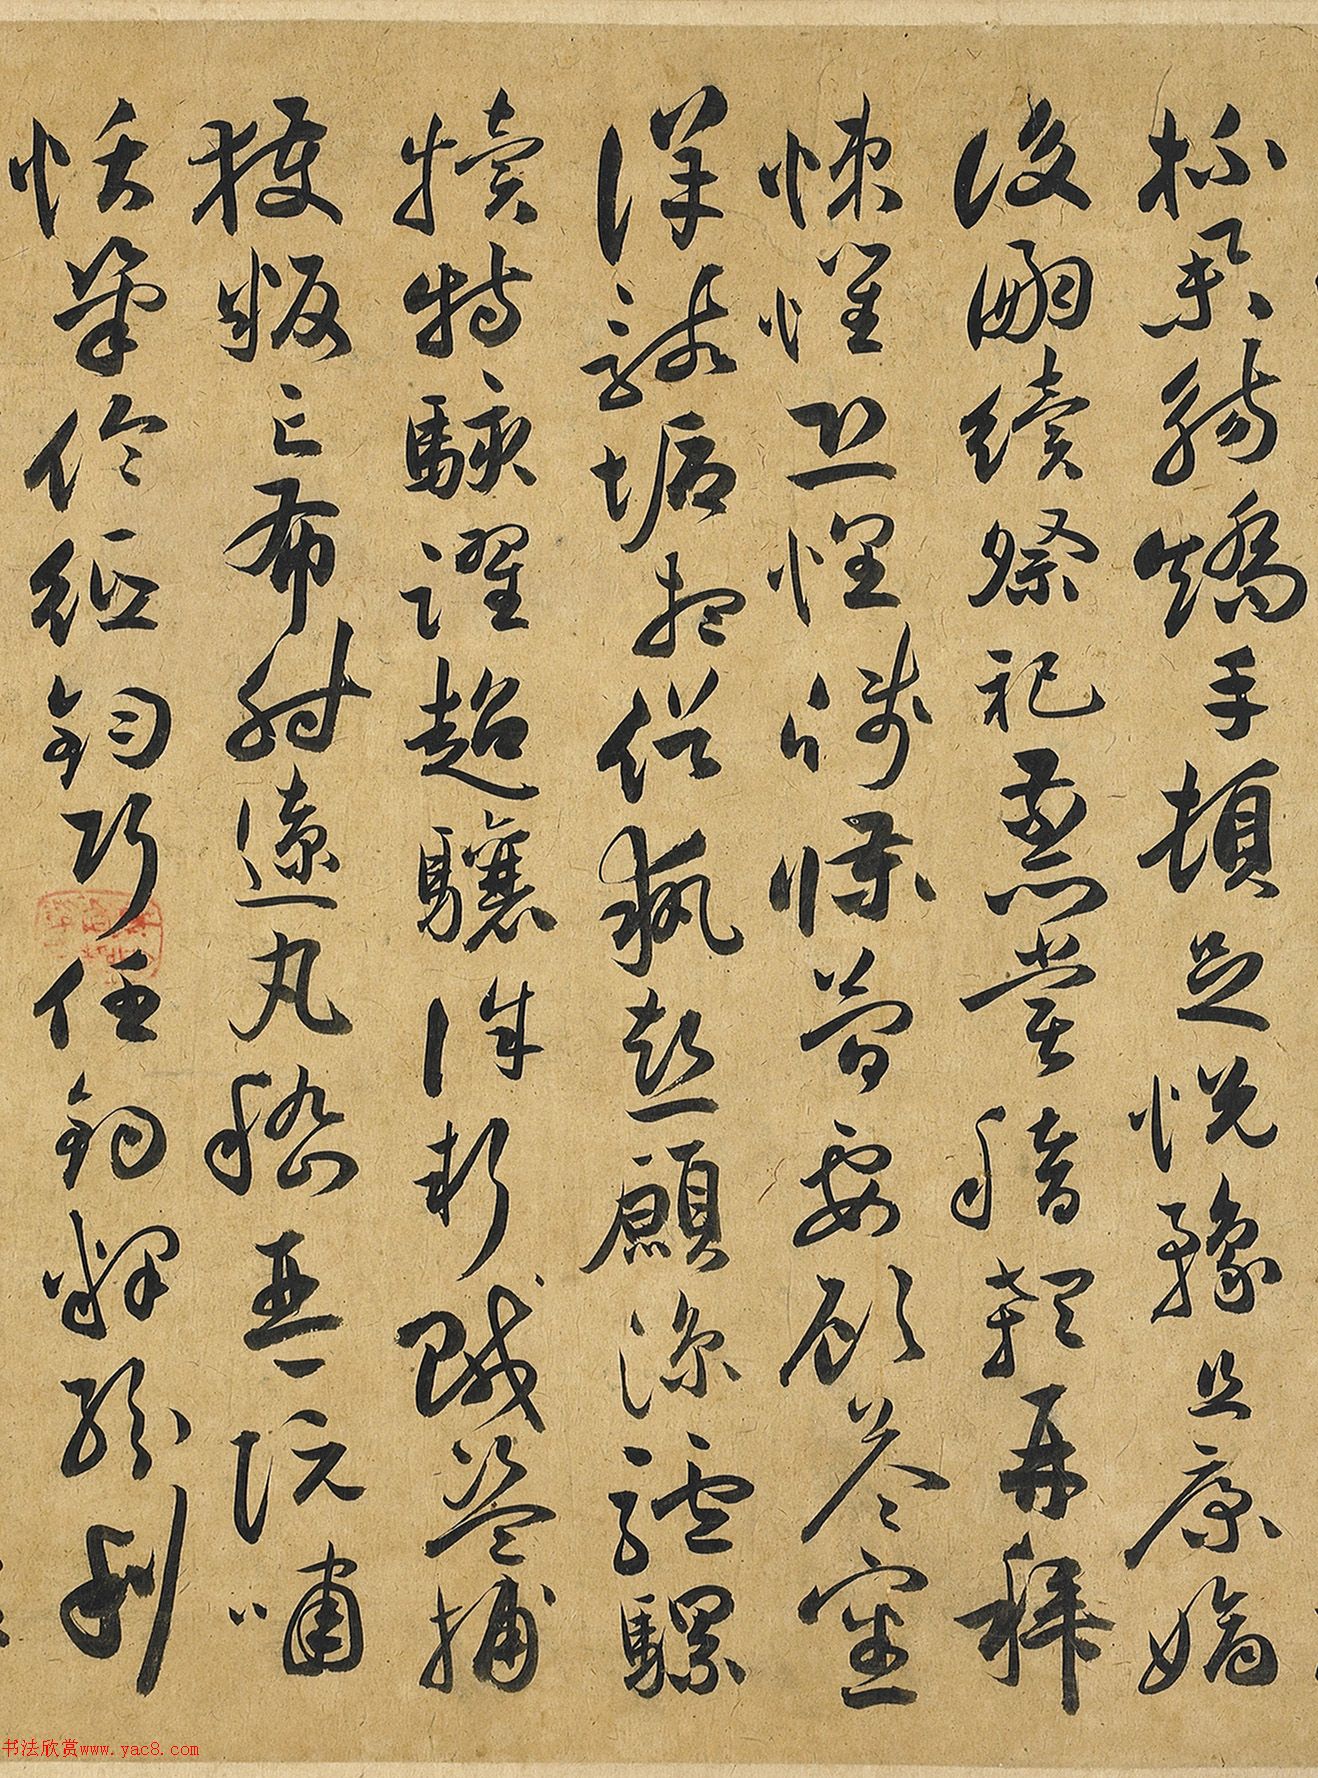 杯舉觴矯手頓足悅豫且康嫡
後嗣續祭祀蒸嘗稽顙再拜
悚懼恐惶牋牒簡要顧答審
詳骸垢想浴執熱願涼驢騾
犢特駭躍超驤誅斬賊盜捕
獲叛亡布射遼丸嵇琴阮嘯
恬筆倫紙鈞巧任釣釋紛利
书法欣赏www.yac8.com